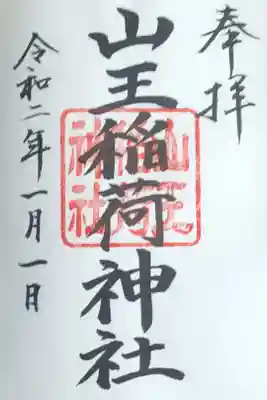 奉拝
山王稲荷神社
山王稲荷神社
令和二年一月一日